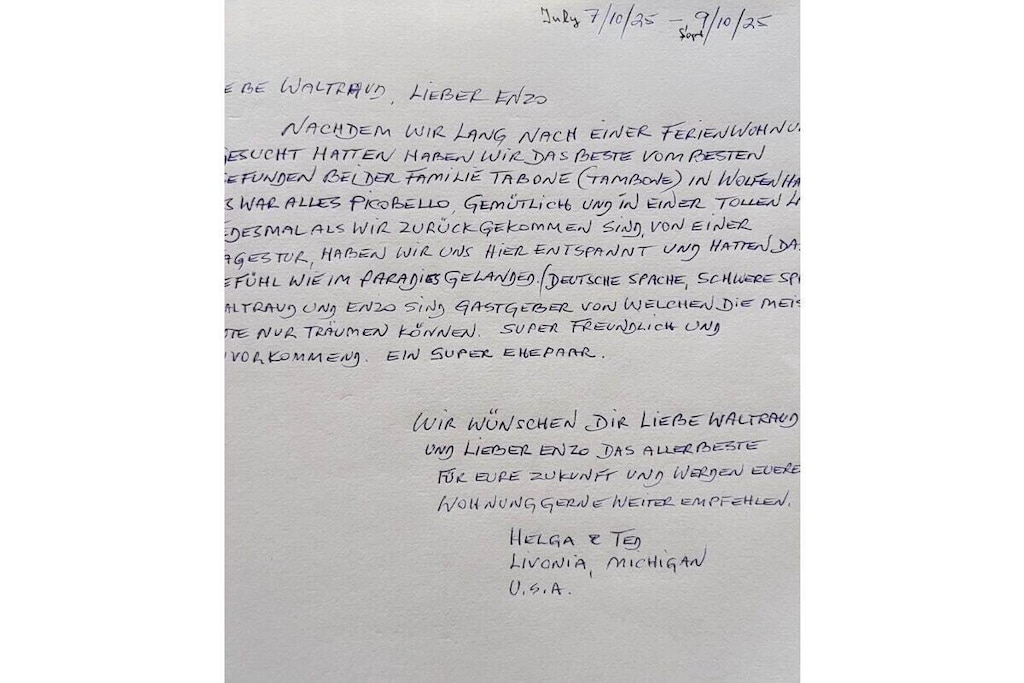 July 7/10/25 – 9/10/25
Sept
EBE WALTRAUD, LIEBER ENZO
NACHDEM WIR LANG NACH EINER FERIENWOHNU
GESUCHT HATTEN HABEN WIR DAS BESTE VOM BESTEN
EFUNDEN BEI DER FAMILIE TABONE (TAMBONE) IN WOLFENHA
S WAR ALLES PICOBELLO, GEMÜTLICH UND IN EINER TOLLEN L
EDESMAL ALS WIR ZURÜCK GEKOMMEN SIND, VON EINER
AGESTUR, HABEN WIR UNS HIER ENTSPANNT UND HATTEN DA
EFÜHL WIE IM PARADIES GELANDED. (DEUTSCHE SPACHE, SCHWERE SP
ALTRAUD UND ENZO SIND GASTGEBER VON WELCHEN DIE MEIS
TE NUR TRÄUMEN KÖNNEN. SUPER FREUNDLICH UND
VORKOMMEND. EIN SUPER EHEPAAR.
WIR WÜNSCHEN DIR LIEBE WALTRAUD
UND LIEBER ENZO DAS ALLERBESTE
FÜR EURE ZUKUNFT UND WERDEN EUERE
WOHNUNG GERNE WEITER EMPFEHLEN.
HELGA & TED
LIVONIA, MICHIGAN
U.S.A.